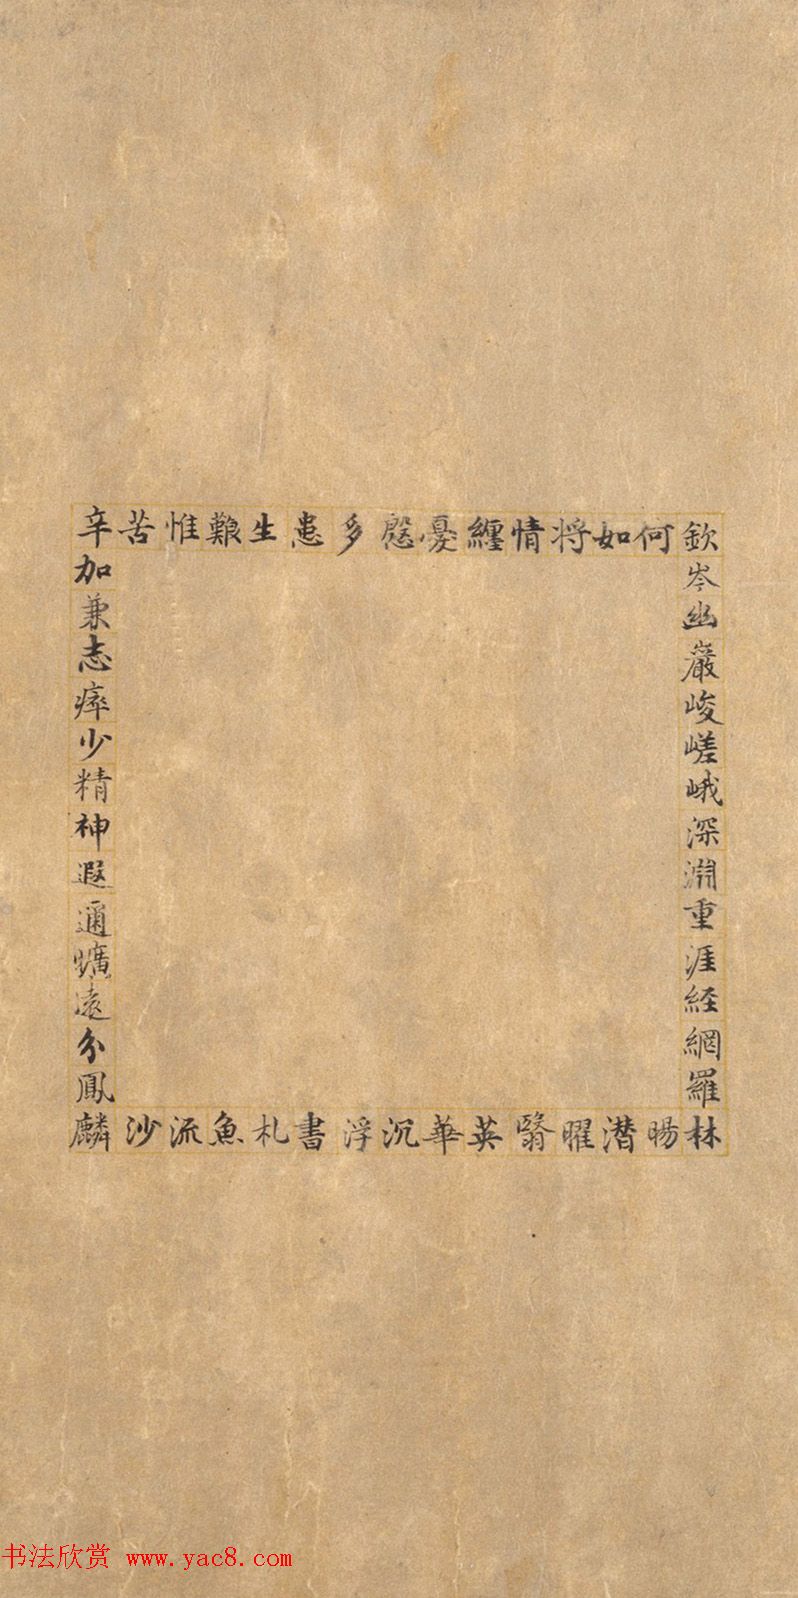 欽岑幽巖峻嵯峨深淵重涯経網羅林
何如将情纏憂慇多患生艱惟苦辛
加兼志瘁少精神遐通曠遠分鳳麟
沙流魚札書浮沉華英翳曜潜暘
书法欣赏 www.yac8.com